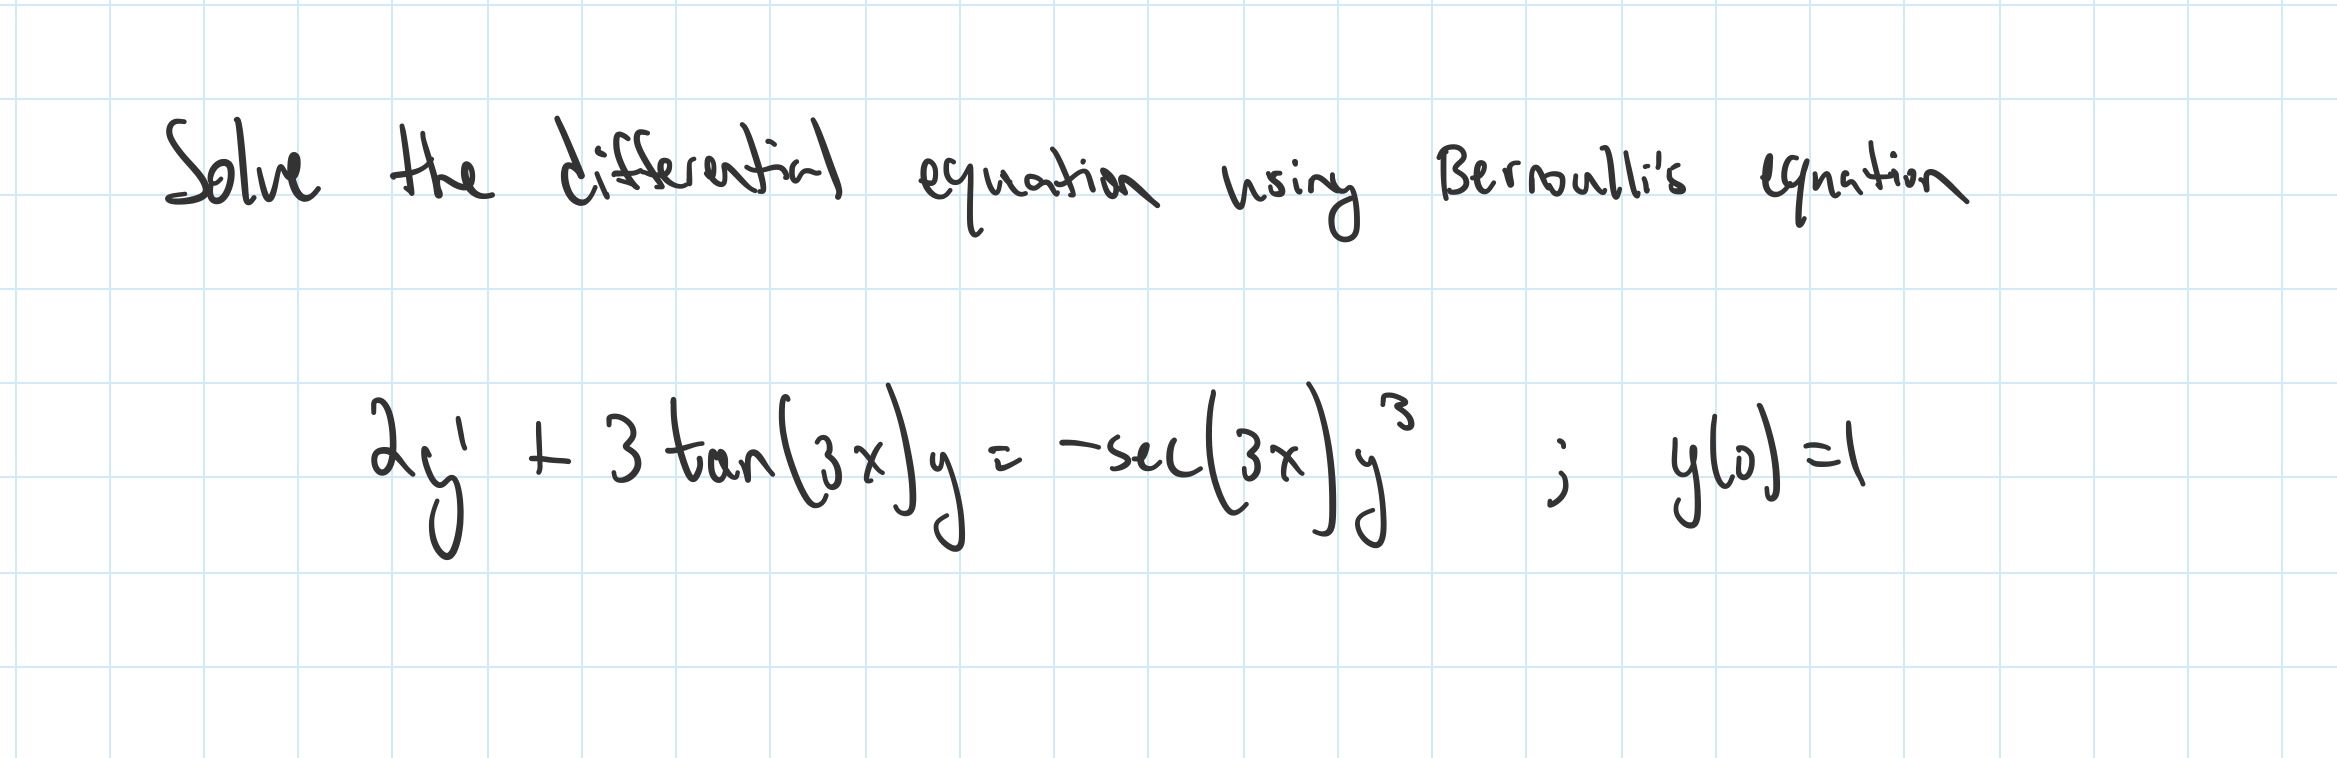 Solve the differential equation using Bernoulli's equation
2y' + 3 tan(3x)y = -sec(3x)y³ ; y(0)=1